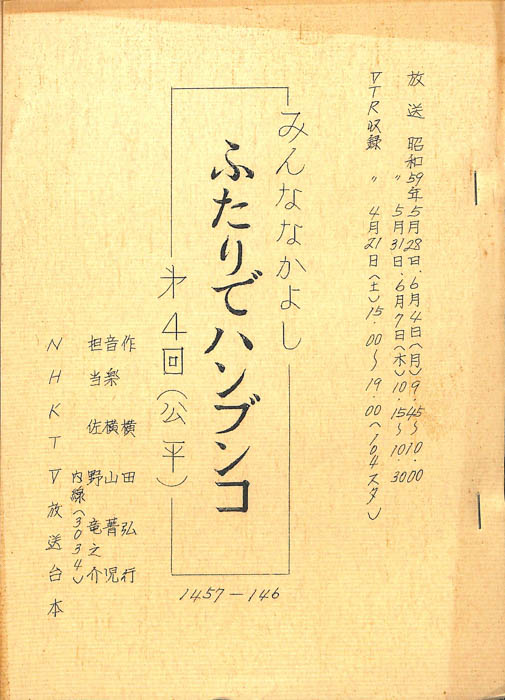 放送 昭和59年5月28日・6月4日(月)9・45〜10・00
〃 5月31日・6月7日(木)10・15〜10・30
VTR収録 〃 4月21日(土)15・00〜19・00(104スタ)
みんななかよし
ふたりでハンブンコ
才4回(公平)
作 横田弘行
音楽 横山菁児
担当 佐野竜之介
内線(3034)
NHKTV放送台本
1457-146